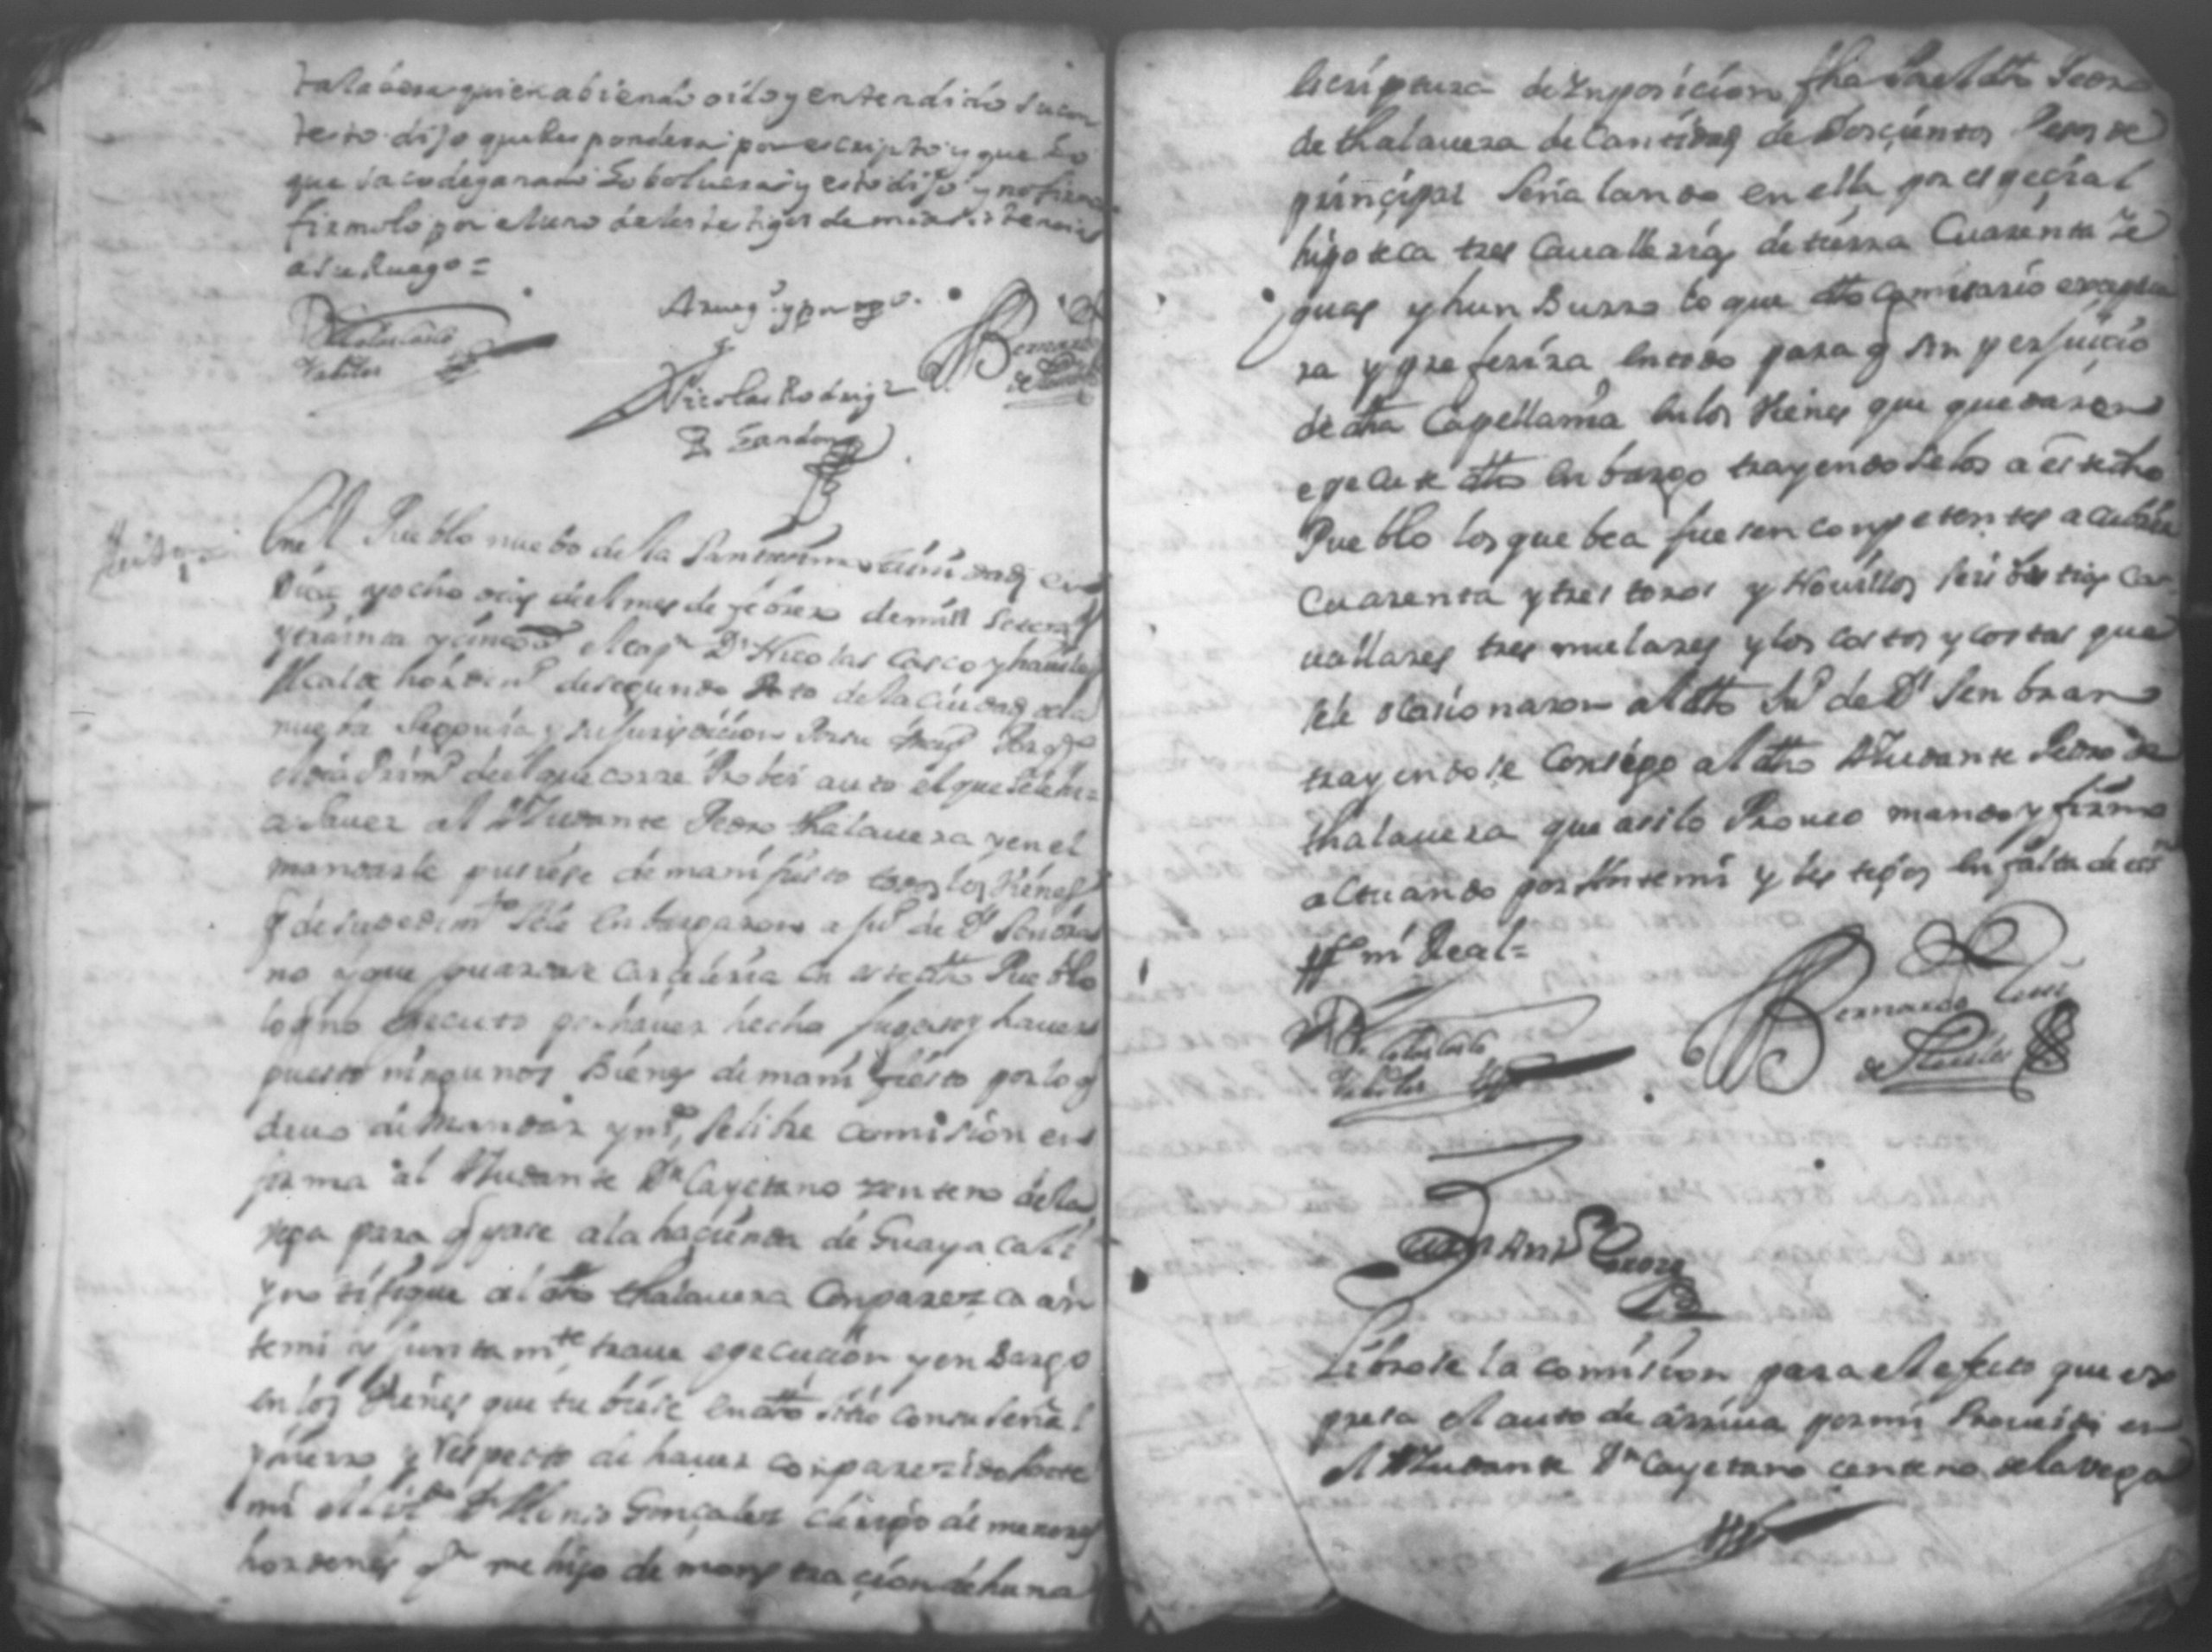 talabera quien abiendo oido y entendido su con
testo dijo que Responderá por escripto y que lo
que saco de ganado lo bolverá y esto dijo y no firmo
firmolo por el uno de los testigos de mi asistencia
a su Ruego =
Nicolas Casco
Arueg.º y por tgo.
Bernardo
de
Nicolas Rodrigz
Gandon
En el Pueblo nuebo de la Santissima trinidad en
Diez y ocho dias del mes de febrero de mill Setecs
y treinta y cinco el Capn Dn Nicolas Casco y
Alcalde hordino de segundo Boto de la ciudad de la
nueba Segovia y su jurisdiccion Por su Magd
el dia Primo del que corre Probei auto el que se le hizo
a Saver al Aiudante Pedro thalavera y en el
mandarle pusiese de manifiesto todos los Bienes
q de su pedimto se le enbargaron a Ju.º de Dˢ Senbra
no y que guardase carceleria en este dho Pueblo
lo q no executo por haver hecho fuga y no haver
puesto ningunos Bienes de manifiesto por lo q
devo de mandar y mdo, se libre comision en
forma al Aiudante Dn Cayetano zenteno de la
vega para q pase a la hacienda de Guayacali
y notifique al dho thalavera Comparezca an
temi y juntamte, trave egecucion y enbargo
en los Bienes que tubiese en dho sitio con su señal
y fierro y Respecto de haver comparezido ante
mi el Dn Gonçales Clerigo de menores
hordenes qn me hiso demonstracion de huna
Escriptura de Inposicion fha Por el dho Pedro
de thalavera de Cantidad de Dosçientos Pesos de
prinçipal Señalando en ella por especial
hipoteca tres Cavallerias de tierra Cuarenta Ye
guas y hun Burro lo que dho comisario
ra y preferira en todo para q sin perjuicio
de dha Capellania en los Bienes que quedaren
egecute dho enbargo trayendoselos a este dho
Pueblo los que bea fuesen conpetentes a cubrir
Cuarenta y tres toros y Nouillos seis bestias Ca
vallares tres mulares y los costos y costas que
se le ocacionaron al dho Ju.º de Dˢ Senbrano
trayendose Consigo al dho Aiudante Pedro de
thalavera que asi lo Proveo mando y firmo
actuando por Ante mi y testigos en falta de
mi Real =
Nicolas Casco
Bernardo Luis
de
Juan Ant.º
Librose la comision para el efecto que ex
presa el auto de arriva por mi Proveido en
el Aiudante Dn Cayetano centeno de la vega